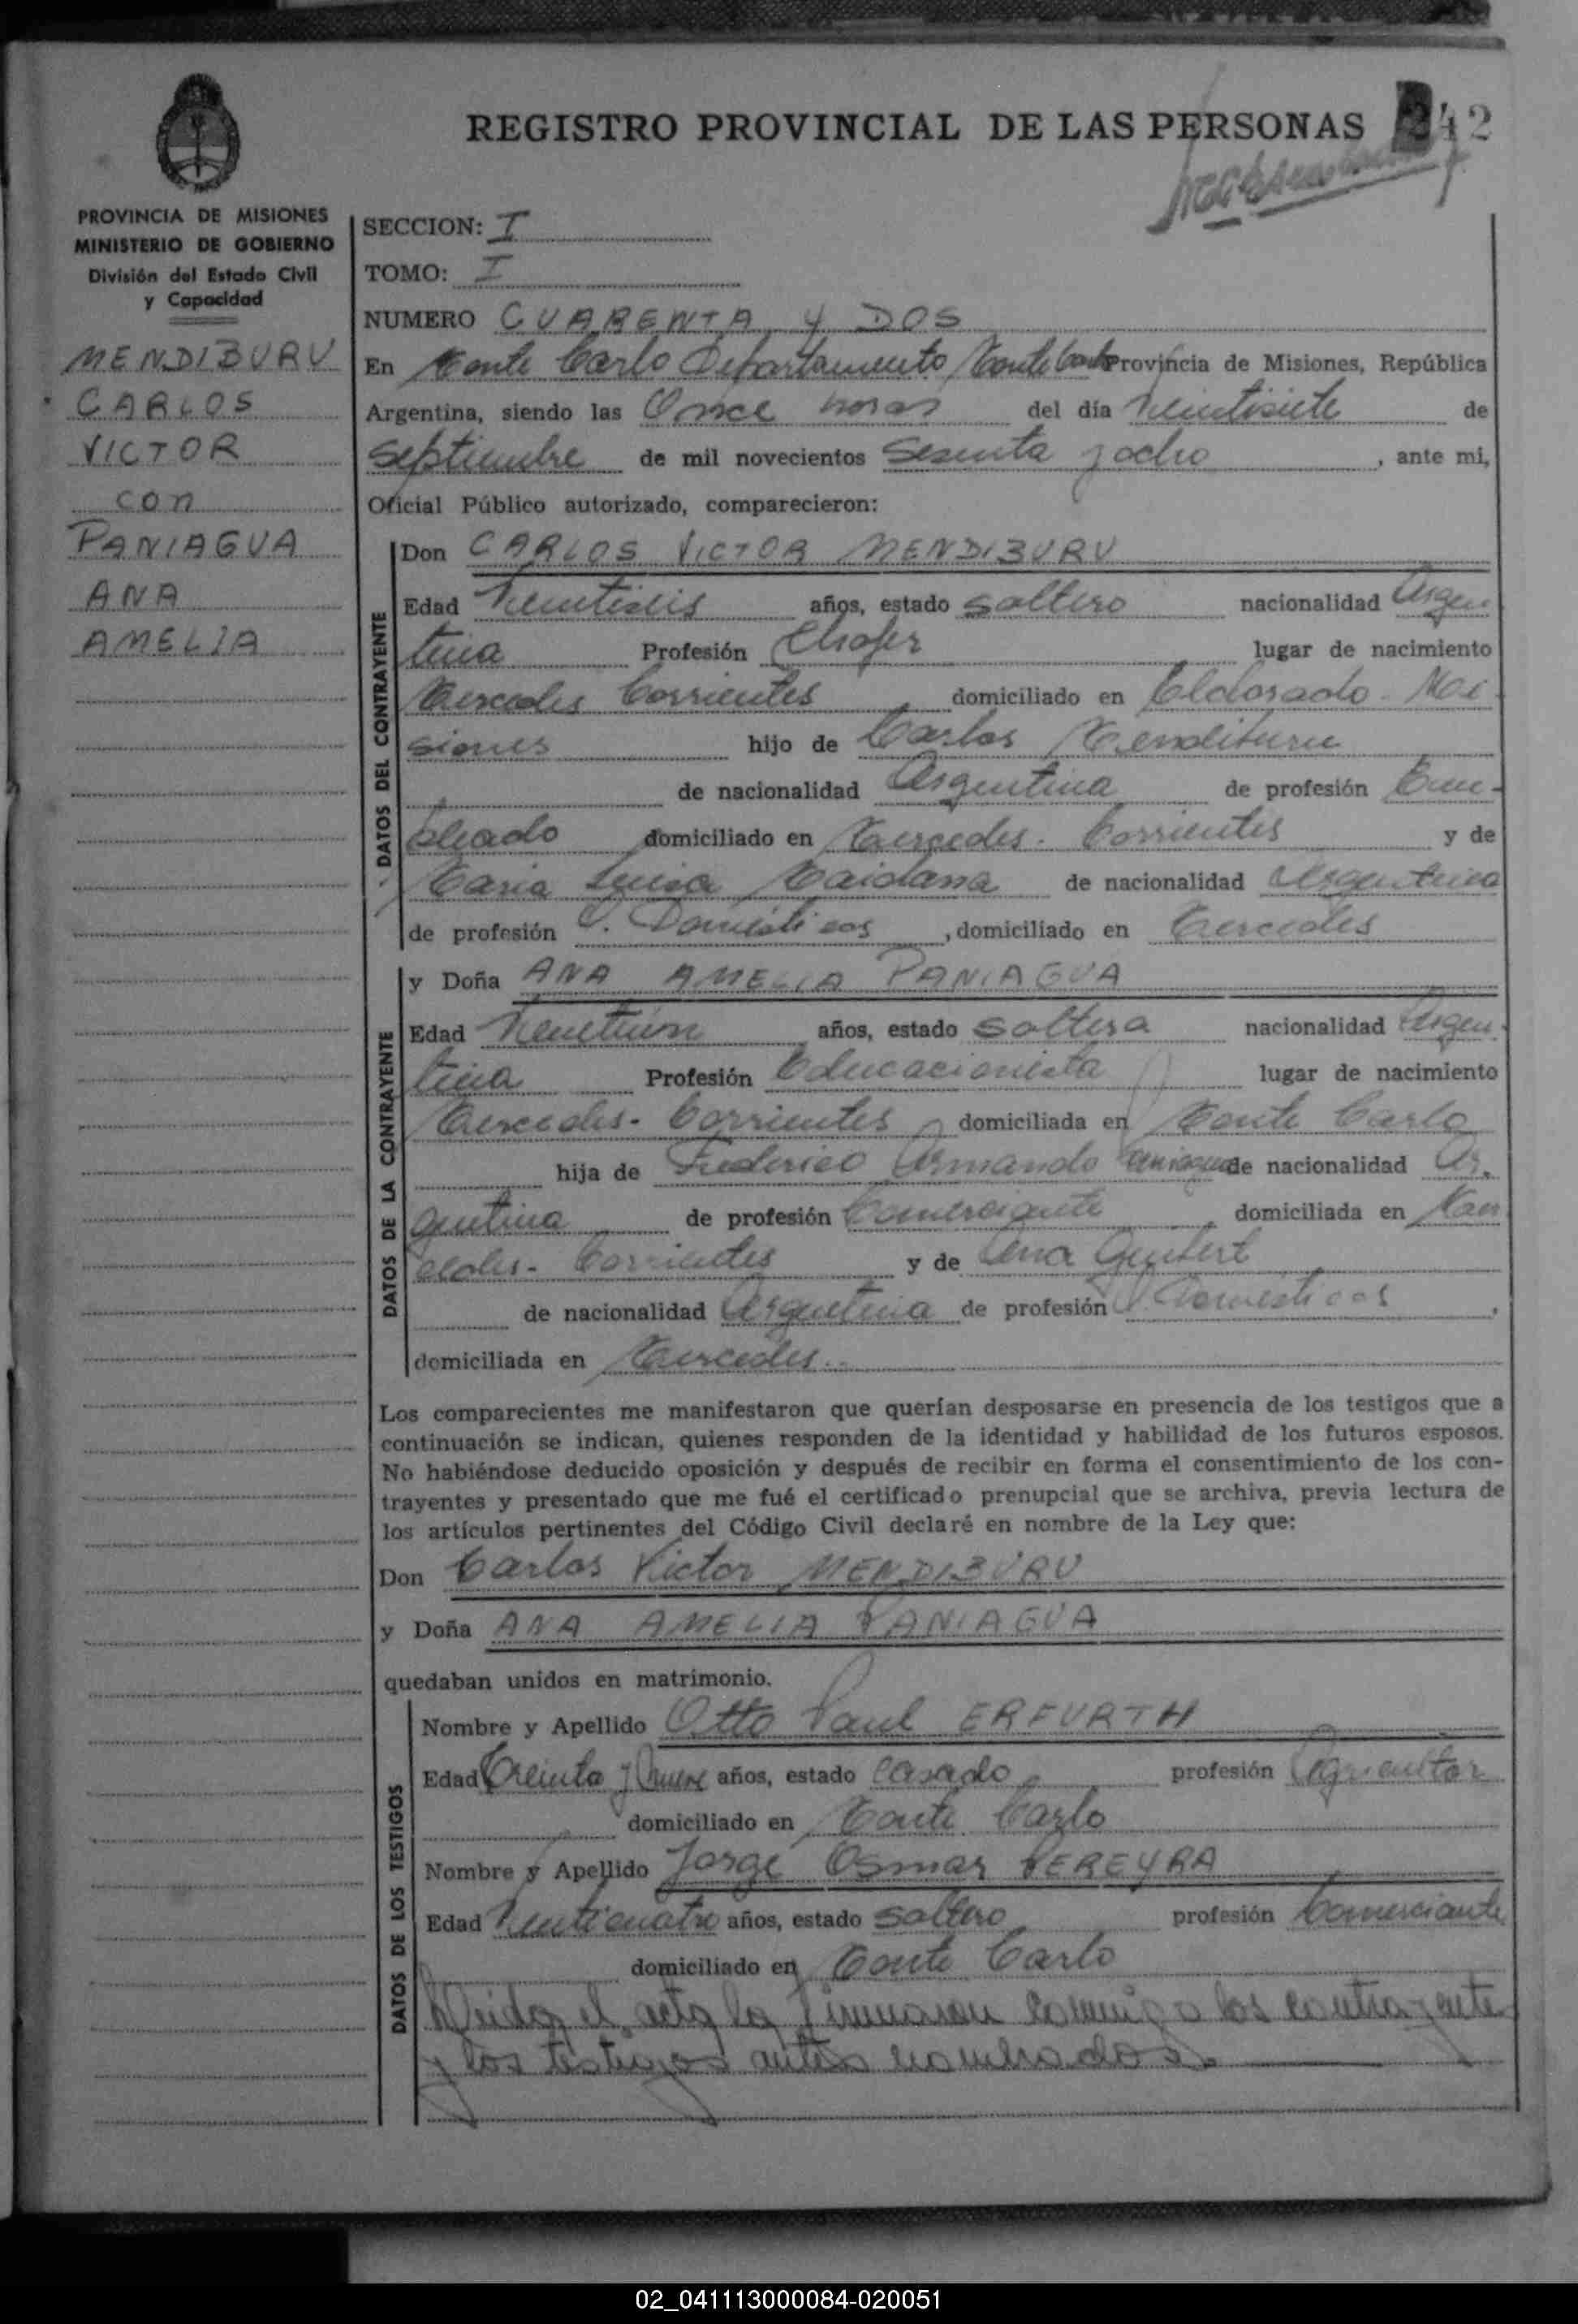 REGISTRO PROVINCIAL DE LAS PERSONAS 42
PROVINCIA DE MISIONES
MINISTERIO DE GOBIERNO
División del Estado Civil
y Capacidad
MENDIBURU
CARLOS
VICTOR
con
PANIAGUA
ANA
AMELIA
SECCION: I
TOMO: I
NUMERO CUARENTA Y DOS
En Monte Carlo Departamento Monte Carlo Provincia de Misiones, República
Argentina, siendo las Once horas del día Veintisiete de
Septiembre de mil novecientos Sesenta y ocho, ante mi,
Oficial Público autorizado, comparecieron:
DATOS DEL CONTRAYENTE
Don CARLOS VICTOR MENDIBURU
Edad Veintiseis años, estado Soltero nacionalidad Argen
tina Profesión Chofer lugar de nacimiento
Mercedes Corrientes domiciliado en Eldorado - Mi
siones hijo de Carlos Mendiburu
de nacionalidad Argentina de profesión Em-
pleado domiciliado en Mercedes - Corrientes y de
Maria Luisa Maidana de nacionalidad Argentina
de profesión Q. Domésticos, domiciliado en Mercedes
DATOS DE LA CONTRAYENTE
y Doña ANA AMELIA PANIAGUA
Edad Veintiún años, estado Soltera nacionalidad Argen-
tina Profesión Educacionista lugar de nacimiento
Mercedes - Corrientes domiciliada en Monte Carlo
hija de Federico Armando Paniagua de nacionalidad Ar-
gentina de profesión Comerciante, domiciliada en
Corrientes y de Ana
de nacionalidad Argentina de profesión Q. Domésticos,
domiciliada en Mercedes
Los comparecientes me manifestaron que querían desposarse en presencia de los testigos que a
continuación se indican, quienes responden de la identidad y habilidad de los futuros esposos.
No habiéndose deducido oposición y después de recibir en forma el consentimiento de los con-
trayentes y presentado que me fué el certificado prenupcial que se archiva, previa lectura de
los artículos pertinentes del Código Civil declaré en nombre de la Ley que:
Don Carlos Victor MENDIBURU
y Doña ANA AMELIA PANIAGUA
quedaban unidos en matrimonio.
DATOS DE LOS TESTIGOS
Nombre y Apellido Otto Paul ERFURTH
Edad Treinta y Nueve años, estado Casado profesión Agricultor
domiciliado en Monte Carlo
Nombre y Apellido Jorge Osmar PEREYRA
Edad Veinticuatro años, estado Soltero profesión Comerciante
domiciliado en Monte Carlo
Leida el acta la firmaron conmigo los contrayentes
y los testigos antes nombrados.
02_041113000084-020051